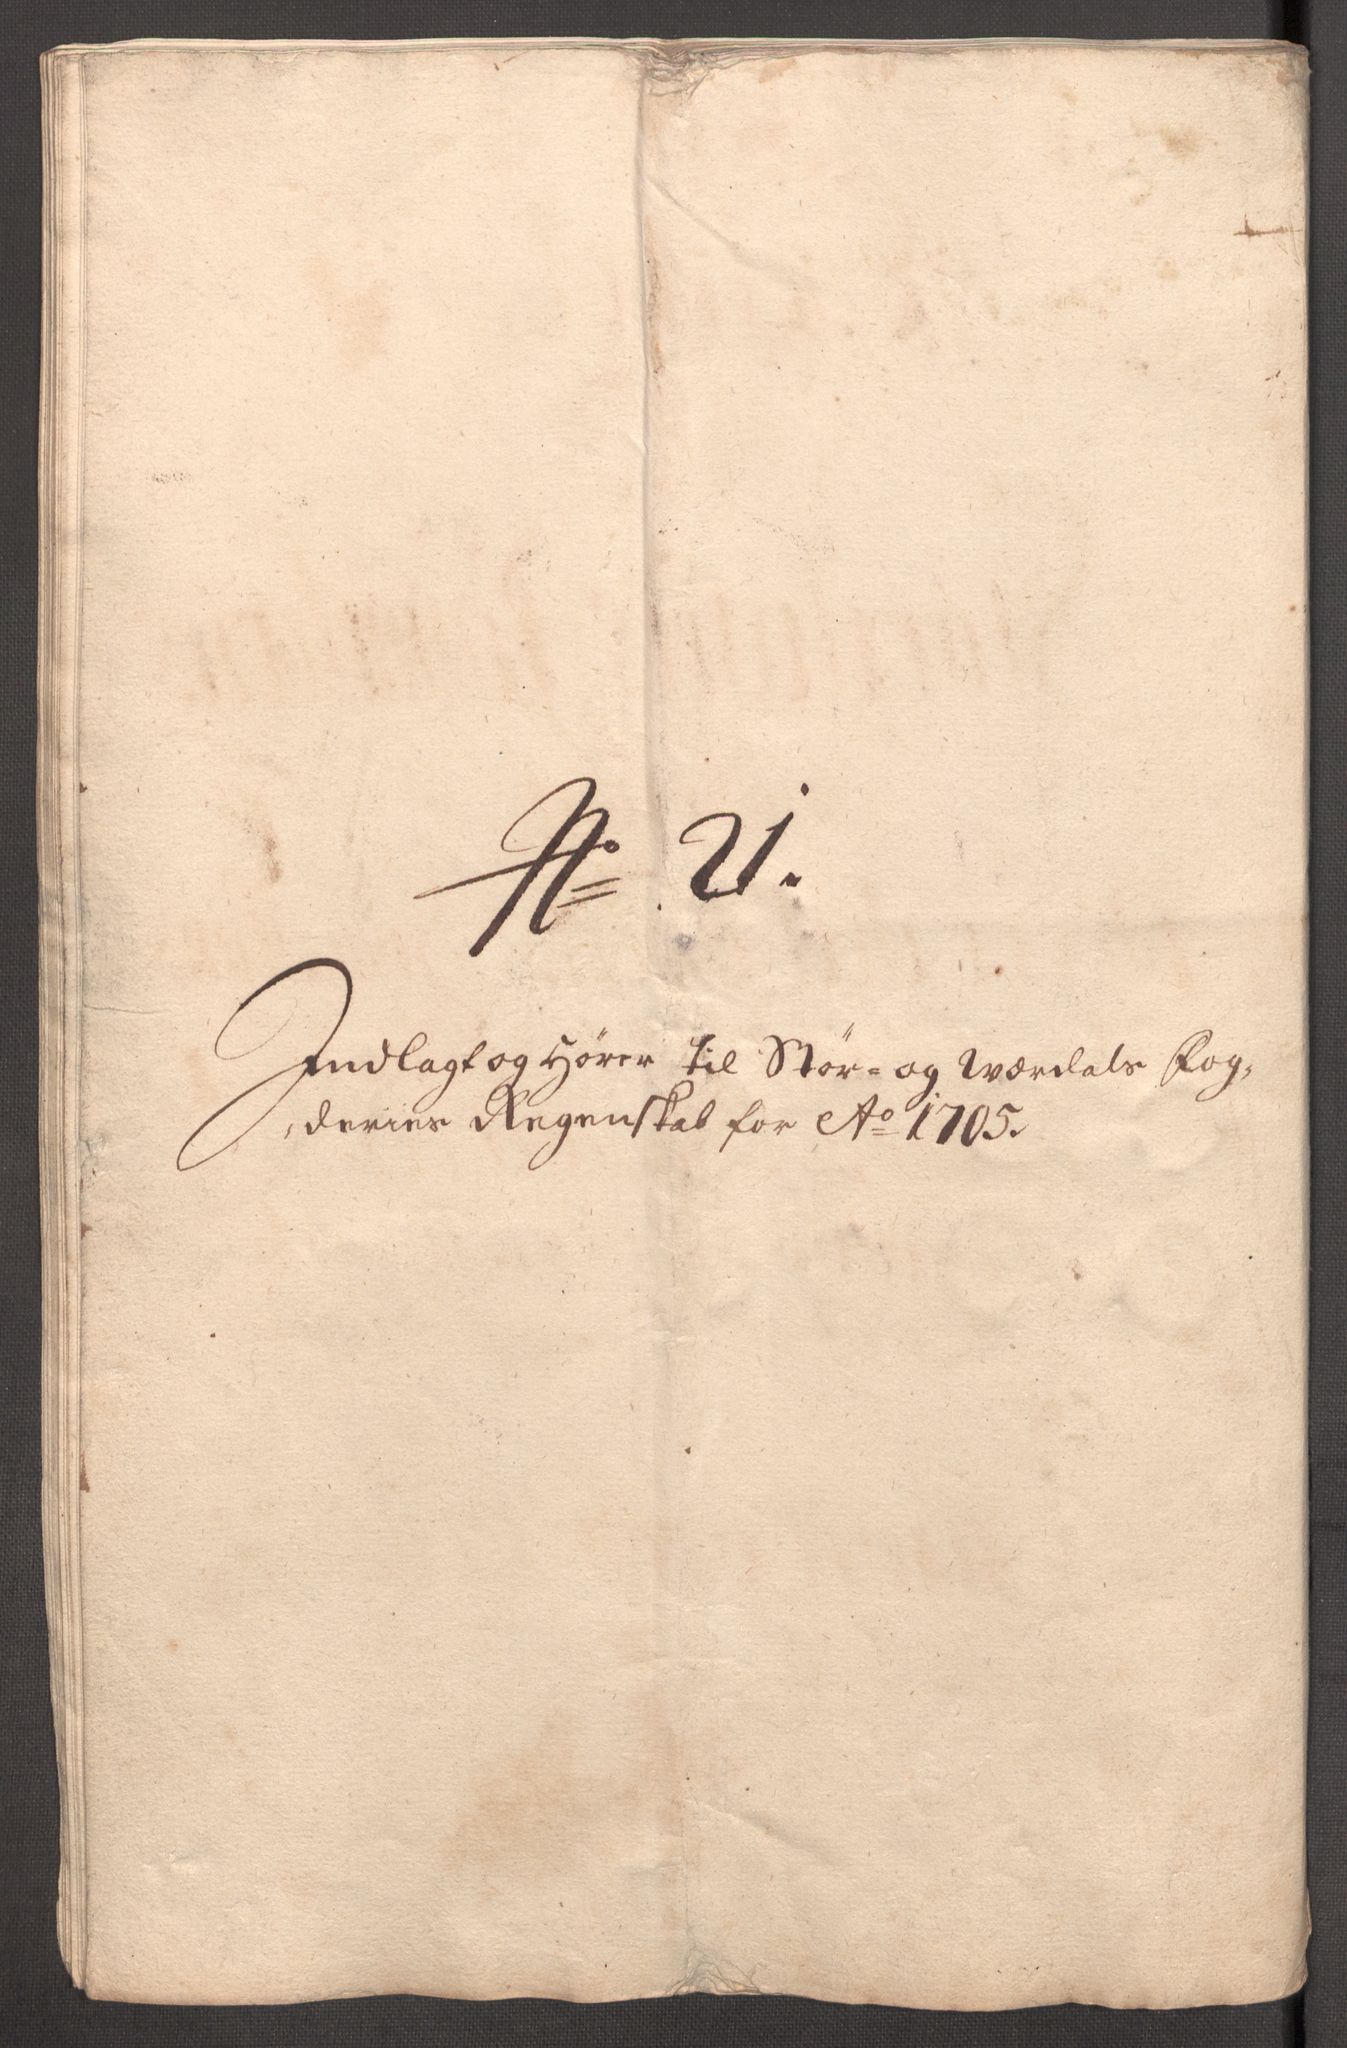 No: VI.
Indlagt og Hører til Stør- og Værdals Fog-
deries Regenskab for Ao 1705.